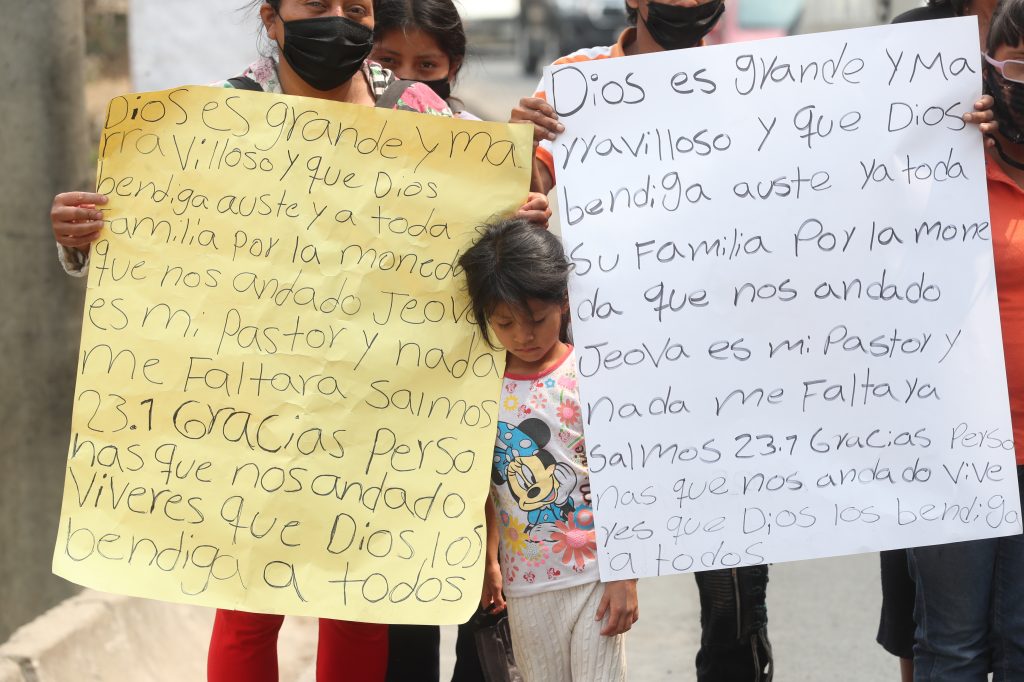 Dios es grande y ma
rra villoso y que Dios
bendiga auste y a toda
Familia por la moneda
que nos andado Jeova
es mi Pastor y nada
me Faltara Salmos
23.1 Gracias Perso
nas que nos andado
Viveres que Dios los
bendiga a todos
Dios es grande y ma
rravilloso y que Dios
bendiga auste ya toda
Su Familia Por la mone
da que nos andado
Jeova es mi Pastor y
nada me Falta ya
Salmos 23.1 Gracias Perso
nas que nos andado vive
res que Dios los bendiga
a todos